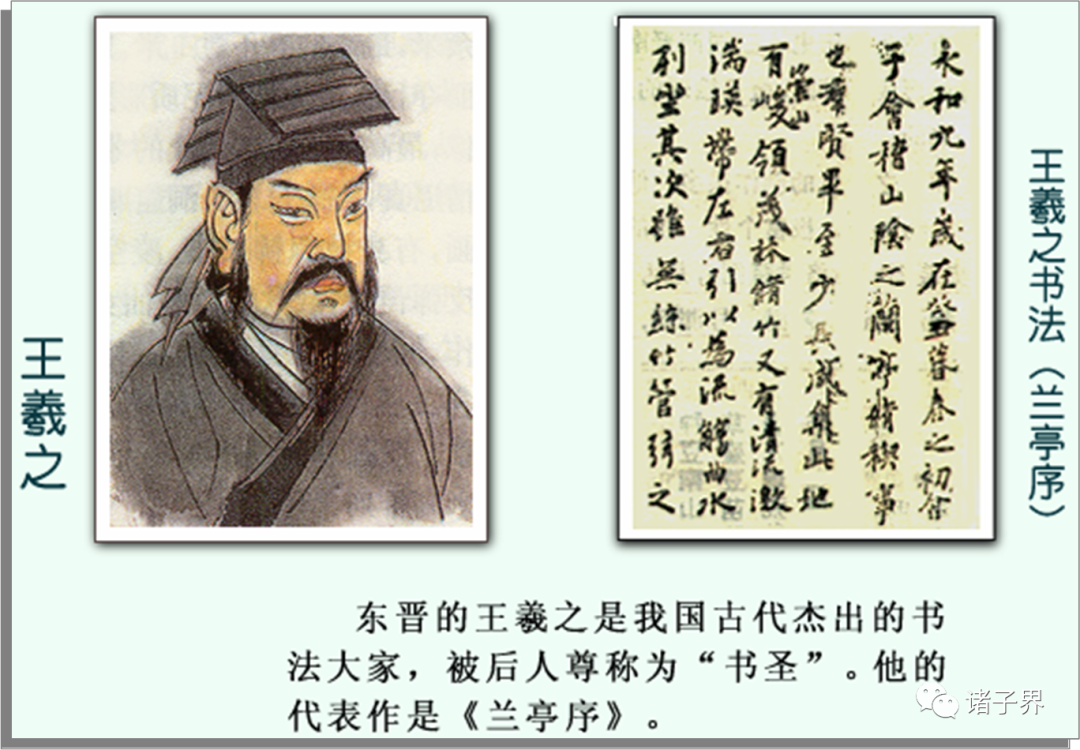 王羲之
永和九年歲在癸丑暮春之初會
于會稽山陰之蘭亭脩稧事
也羣賢畢至少長咸集此地
有崇山峻領茂林脩竹又有清流激
湍暎帶左右引以為流觴曲水
列坐其次雖無絲竹管弦之
王羲之书法（兰亭序）
东晋的王羲之是我国古代杰出的书
法大家，被后人尊称为“书圣”。他的
代表作是《兰亭序》。
诸子界